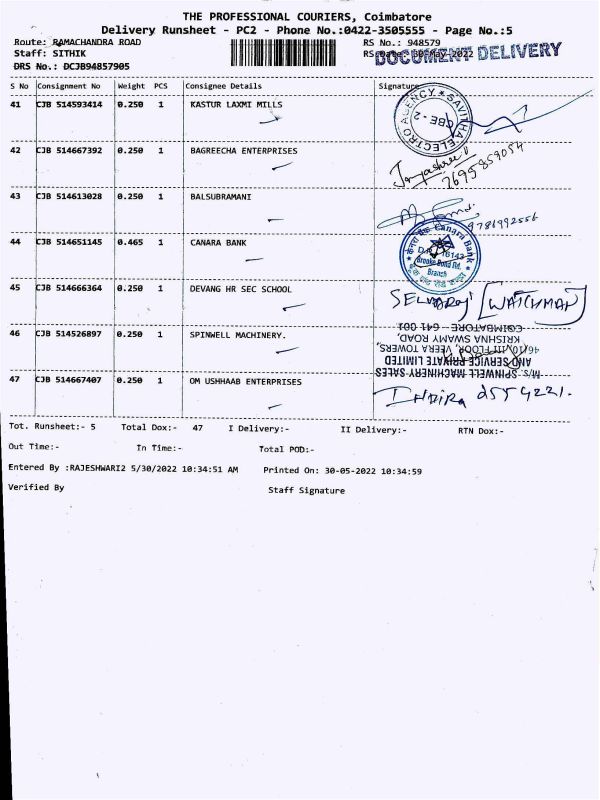 THE PROFESSIONAL COURIERS, Coimbatore
Delivery Runsheet - PC2 - Phone No.:0422-3505555 - Page No.:5
Route: RAMACHANDRA ROAD RS No.: 948579
Staff: SITHIK RS Date: 30-May-2022
DOCUMENT DELIVERY
DRS No.: DCJB94857905
S No Consignment No Weight PCS Consignee Details Signature
41 CJB 514593414 0.250 1 KASTUR LAXMI MILLS
SAVITHA ELECTRO AGENCY
CBE - 2
42 CJB 514667392 0.250 1 BAGREECHA ENTERPRISES
7695859054
43 CJB 514613028 0.250 1 BALSUBRAMANI
9786992556
44 CJB 514651145 0.465 1 CANARA BANK
Canara Bank
Brooke Bond Rd.
Branch
45 CJB 514666364 0.250 1 DEVANG HR SEC SCHOOL
SELVARAJ [WATCHMAN]
46 CJB 514526897 0.250 1 SPINWELL MACHINERY.
M/s. SPINWELL MACHINERY SALES
AND SERVICE PRIVATE LIMITED
46/10, III FLOOR, VEERA TOWERS,
KRISHNA SWAMY ROAD,
COIMBATORE - 641 001
47 CJB 514667407 0.250 1 OM USHHAAB ENTERPRISES
INDIRA
Tot. Runsheet:- 5 Total Dox:- 47 I Delivery:- II Delivery:- RTN Dox:-
Out Time:- In Time:- Total POD:-
Entered By :RAJESHWARI2 5/30/2022 10:34:51 AM Printed On: 30-05-2022 10:34:59
Verified By Staff Signature